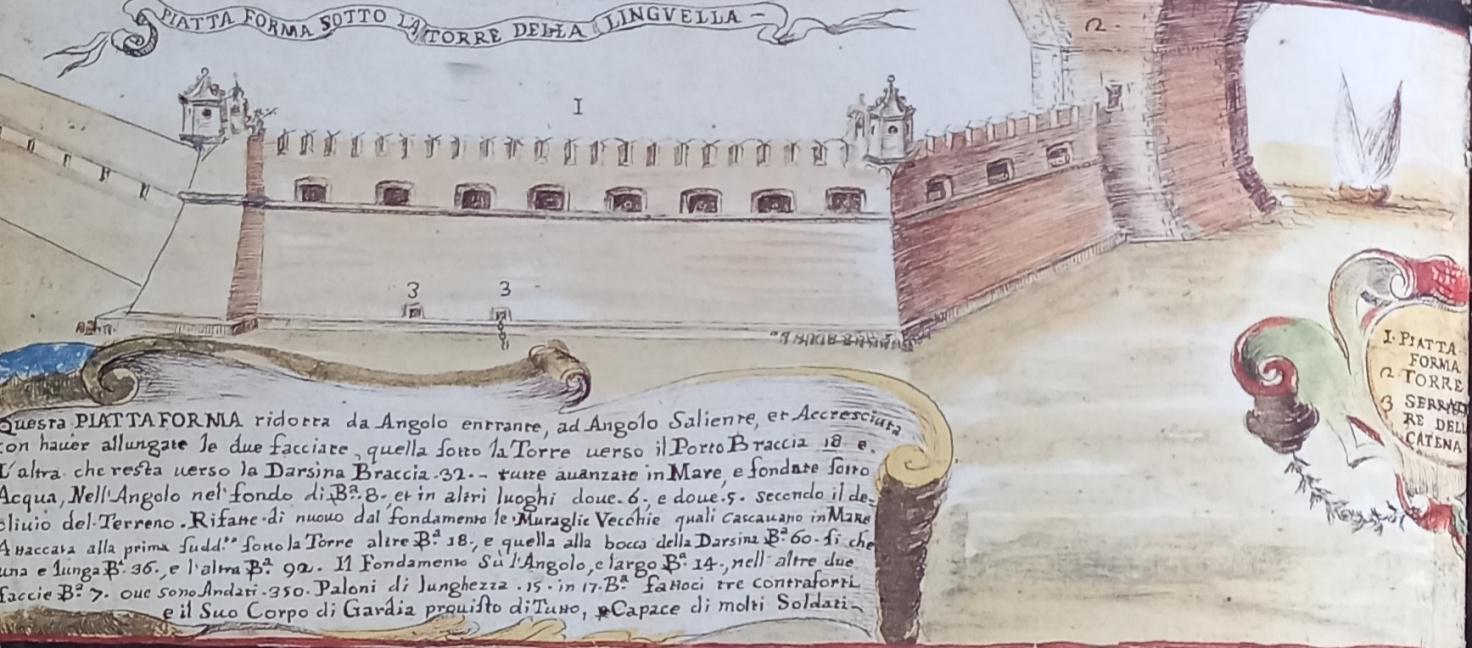 PIATTA FORMA SOTTO LA TORRE DELLA LINGVELLA
1
2
3 3
1. PIATTA
FORMA
2 TORRE
3 SERRATO
RE DELL
CATENA
Questa PIATTAFORMA ridotta da Angolo entrante, ad Angolo Saliente, et Accresciuta
con hauer allungate le due facciate, quella sotto la Torre uerso il Porto Braccia 18 e.
L'altra che resta uerso la Darsina Braccia .32.- tutte auanzate in Mare, e fondate sotto
Acqua, Nell'Angolo nel fondo di Bª. 8. et in altri luoghi doue .6., e doue .5. secondo il de,
cliuio del Terreno. Rifatte di nuouo dal fondamento le Muraglie Vecchie quali Cascauano in Mare
Attaccata alla prima sudd.ᵗᵃ sotto la Torre altre Bª 18., e quella alla bocca della Darsina Bª 60. si che
una e lunga Bª 36., e l'altra Bª. 92. Il Fondamento Sù l'Angolo, e largo Bª. 14., nell'altre due
faccie Bª 7. oue sono Andati .350. Paloni di lunghezza .15. in 17. Bª. fattoci tre contraforti
e il Suo Corpo di Gardia prouisto di Tutto, e Capace di molti Soldati